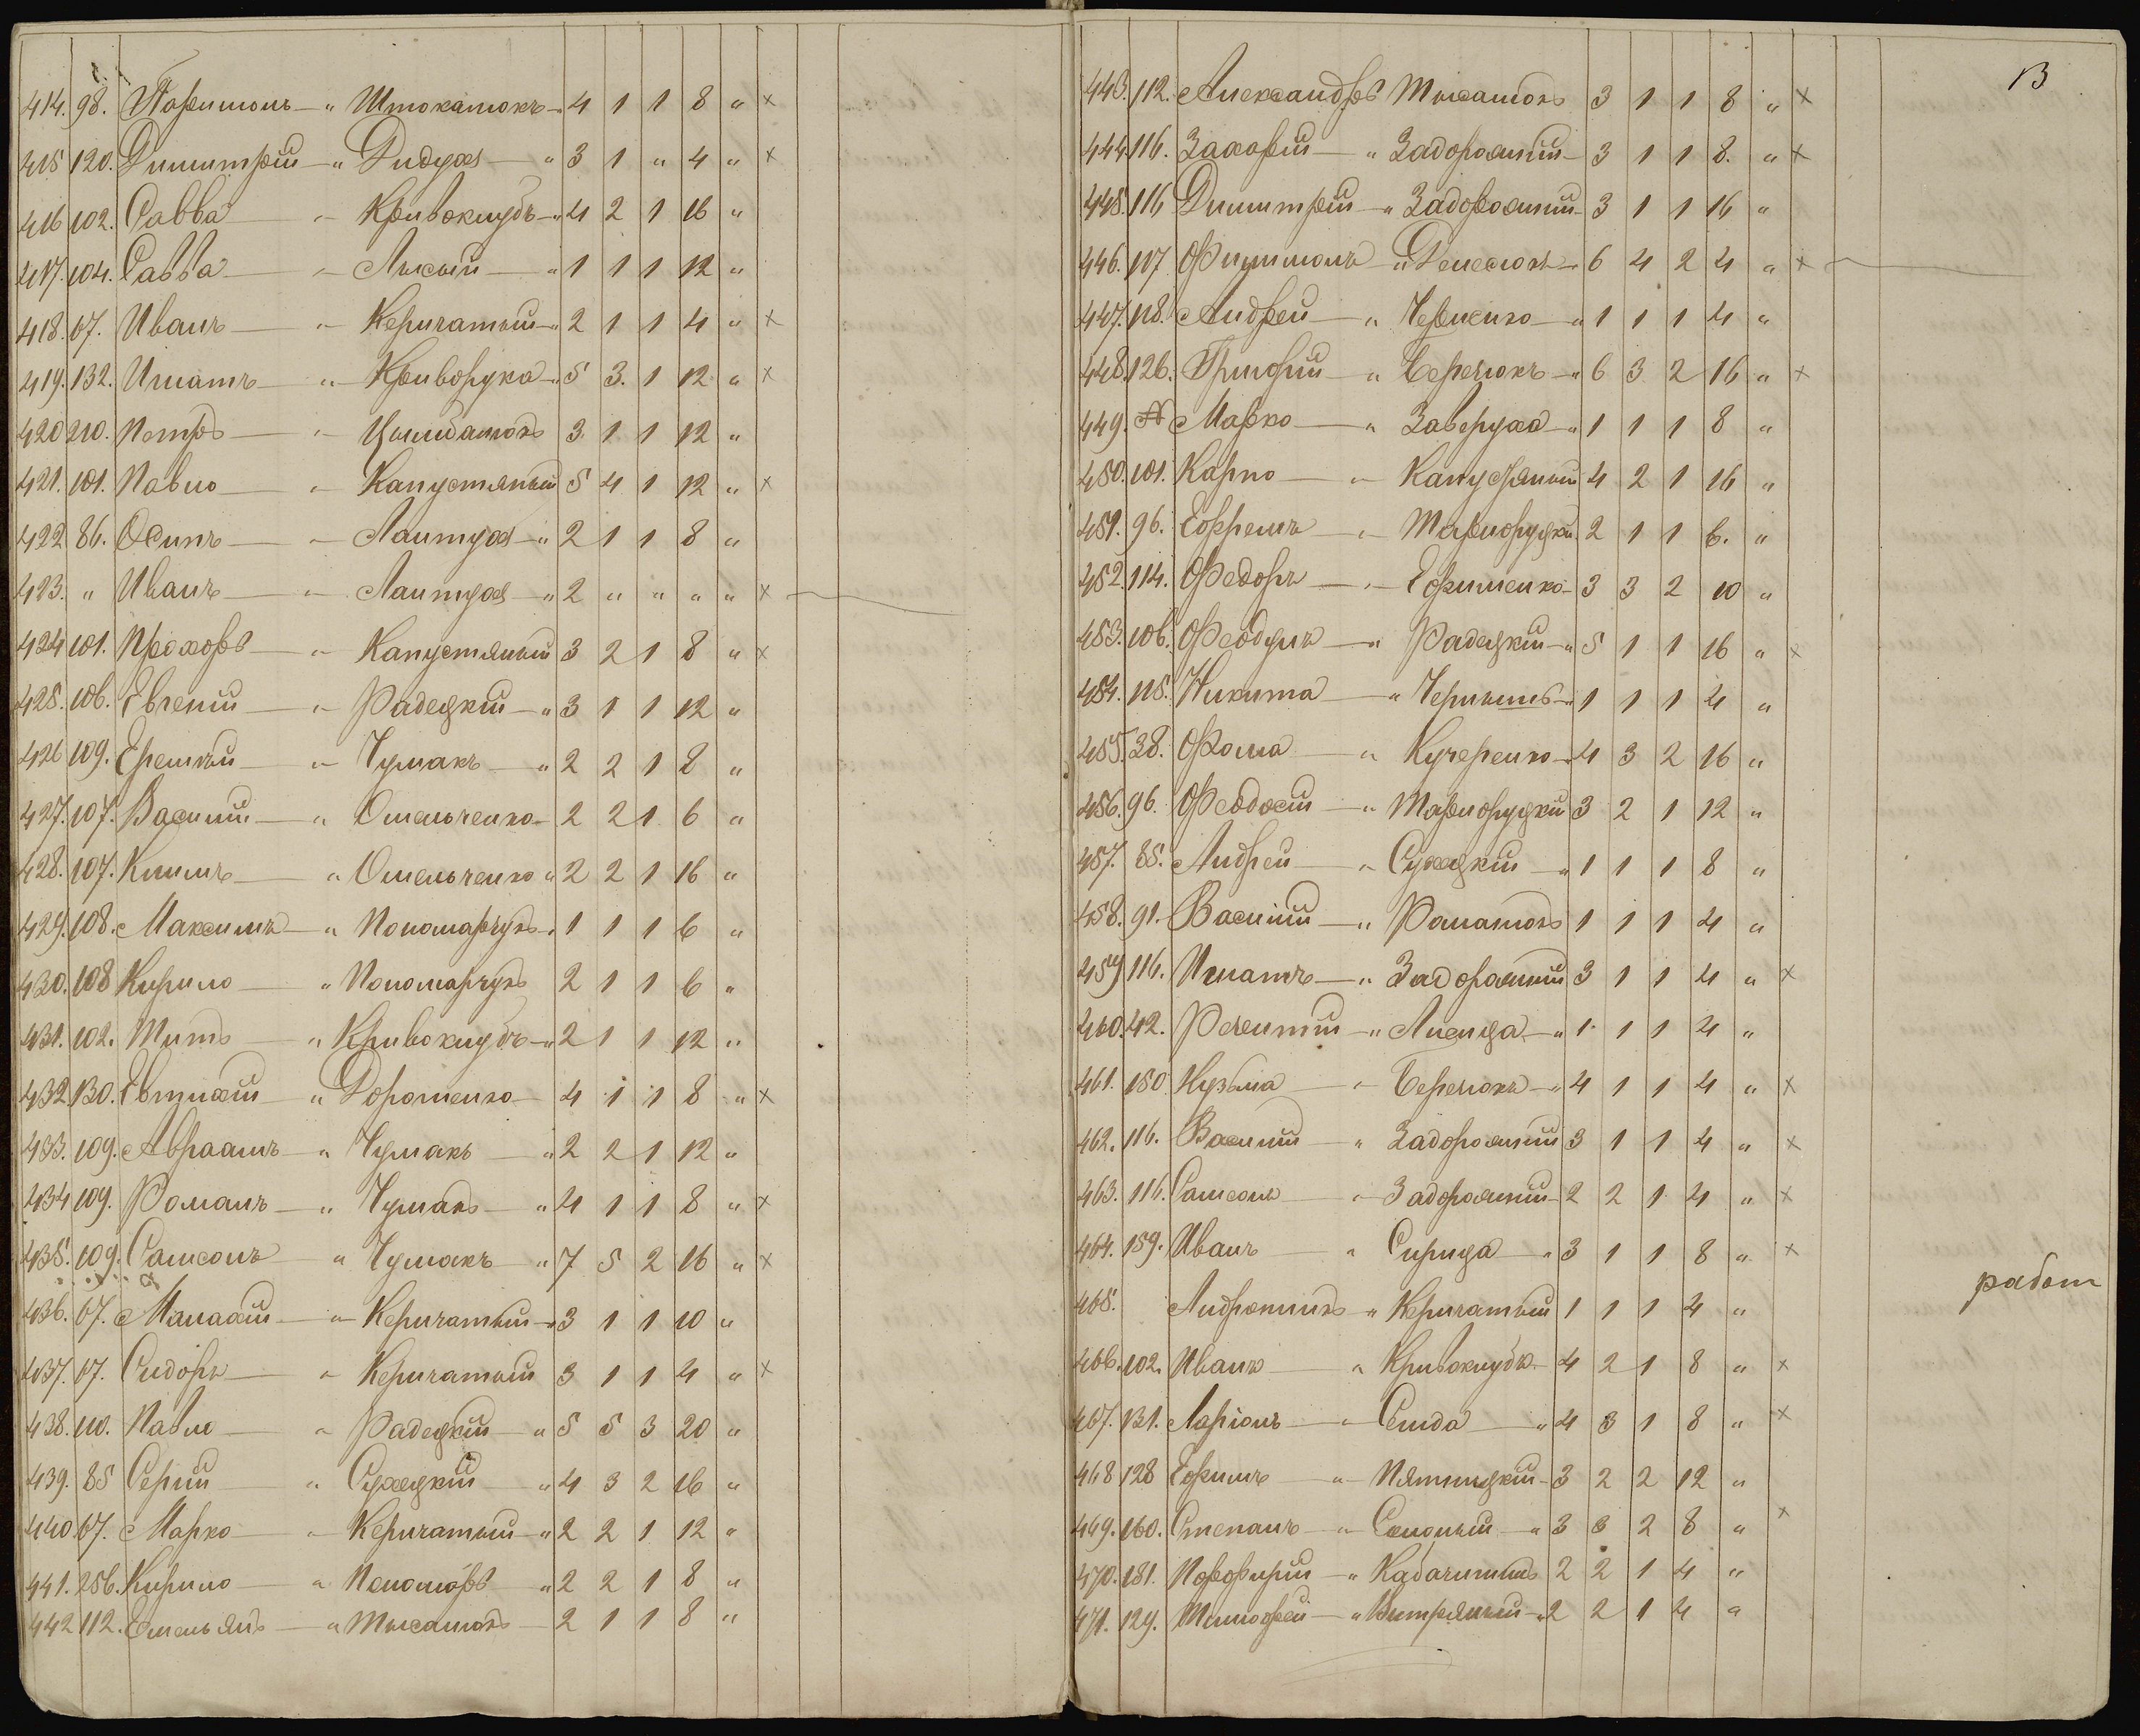 414. 98. Парѳимонъ — " Штокатюкъ — 4 1 1 8 " ×
415 120. Димитрій — " Дидухъ — " 3 1 " 4 " ×
416 102. Савва — " Кривоклубъ — " 4 2 1 16 "
417. 104. Савва — " Лысый — " 1 1 1 12 "
418. 67. Иванъ — " Керничный — " 2 1 1 4 " ×
419. 132. Игнатъ — " Криворука — " 5 3. 1 12 " ×
420 210. Петръ — " Цымбалюкъ 3 1 1 12 "
421. 101. Павло — " Капустяный 5 4 1 12 " ×
422 86. Осипъ — " Лантухъ — " 2 1 1 8 "
423. " Иванъ — " Лантухъ — " 2 " " " " ×
424 101. Прохоръ — " Капустяный 3 2 1 8 " ×
425. 106. Евгеній — " Радецкій — " 3 1 1 12 "
426 109. Еремѣй — " Чумакъ — " 2 2 1 8 "
427. 107. Василій — " Омельченко — 2 2 1. 6 "
428. 107. Климъ — " Омельченко " 2 2 1 16 "
429. 108. Максимъ — " Пономарчукъ 1 1 1 6 "
430. 108 Кирило — " Пономарчукъ 2 1 1 6 "
431. 102. Титъ — " Кривоклубъ — " 2 1 1 12 "
432 130. Евтихій — " Дорошенко — 4 1 1 8 " ×
433. 109. Авраамъ — " Чумакъ — " 2 2 1 12 "
434 109. Романъ — " Чумакъ — " 4 1 1 8 " ×
435. 109. Самсонъ — " Чумакъ " 7 5 2 16 " ×
436. 67. Малахій — " Керничный — 3 1 1 10 "
437. 67. Сидоръ — " Керничный 3 1 1 4 " ×
438. 110. Павло — " Радецкій — " 5 5 3 20 "
439. 85 Сергій — " Сухецкій — " 4 3 2 16 "
440 67. Марко — " Керничный — " 2 2 1 12 "
441. 256. Кирило — " Пономаръ — " 2 2 1 8 "
442 112. Емельянъ — " Тысатюкъ — 2 1 1 8 "
13
443. 112. Александръ Тысатюкъ 3 1 1 8 " ×
444 116. Захарій — " Задорожній — 3 1 1 8. " ×
445. 116 Димитрій — " Задорожній — 3 1 1 16 "
446. 117 Филимонъ " Денесюкъ — 6 4 2 4 " ×
447. 118. Андрей — " Червенко — " 1 1 1 4 "
448. 126. Григорій — " Беретюкъ — " 6 3 2 16 " ×
449. Марко — " Заверуха — " 1 1 1 8 "
450. 101. Карпо — " Капустяный 4 2 1 16 "
451. 96. Ефремъ — " Тарнорудкій 2 1 1 6. "
452. 114. Федоръ — " Ефименко — 3 3 2 10 "
453. 106. Феодулъ — " Радецкій — " 5 1 1 16 " ×
454. 115. Никита — " Чернышъ — " 1 1 1 4 "
455. 38. Фома — " Кучеренко — 4 3 2 16 "
456. 96. Феодосій — " Тарнорудкій 3 2 1 12 "
457. 85. Андрей — " Сухецкій — " 1 1 1 8 "
458. 91. Василій — " Романюкъ 1 1 1 4 "
459 116. Игнатъ — " Задорожній 3 1 1 4 " ×
460. 42. — " Лисица — " 1. 1 1 4 "
461. 150 Кузьма — " Беретюкъ — " 4 1 1 4 " ×
462. 116. Василій — " Задорожній 3 1 1 4 " ×
463. 116. Самсонъ — " Задорожній — 2 2 1. 4 " ×
464. 159. Иванъ — " Сирица — " 3 1 1 8 " ×
465. Андроникъ " Керничный 1 1 1 4 " работ
466. 102. Иванъ — " Кривоклубъ — 4 2 1 8 " ×
467. 131. Ларіонъ — " Семда — " 4 3 1 8 " ×
468 128 Ефимъ — " Пятницкій — 3 2 2 12 "
469. 160. Степанъ — " Солоный — " 3 3 2 8 " ×
470. 181. Порфирій — " 2 2 1 4 "
471. 129. Тимофей — " Витряный — " 2 2 1 4 "